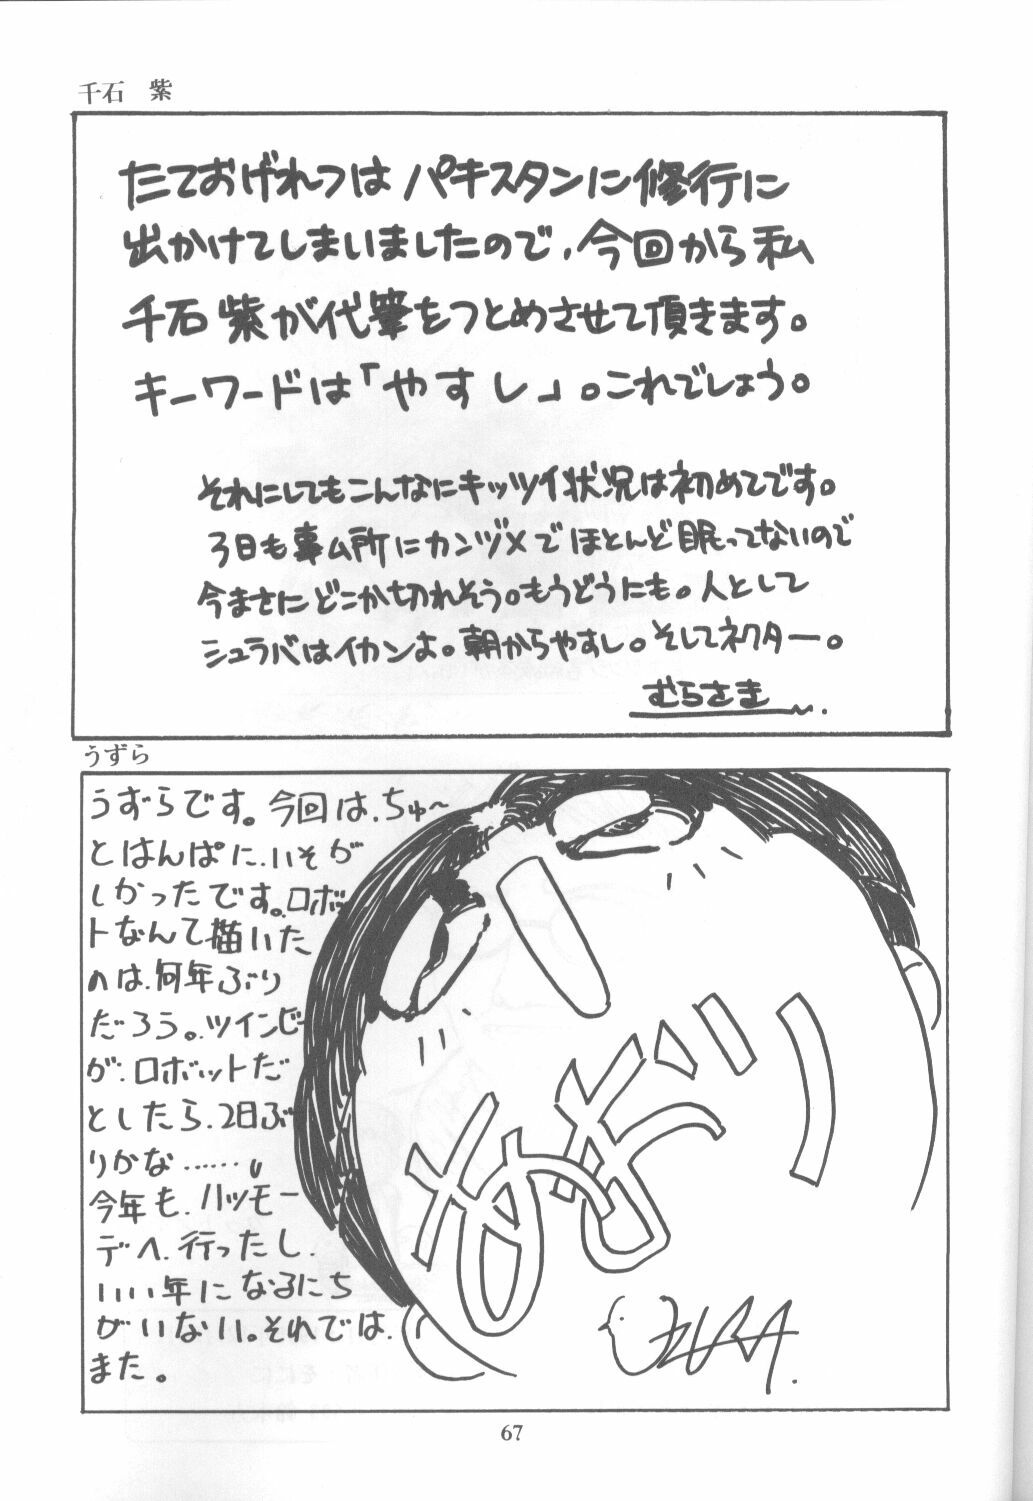 千石 紫
たておげれつは パキスタンに修行に
出かけてしまいましたので、今回から私
千石紫が代筆をつとめさせて頂きます。
キーワードは「やすし」。これでしょう。
それにしてもこんなにキッツイ状況は初めてです。
3日も事ム所にカンヅメでほとんど眠ってないので
今まさにどこか切れそう。もうどうにも。人として
シュラバはイカンよ。朝からやすし。そしてネクター。
むらさき
うずら
うずらです。今回は、ちゅ〜
とはんぱに、いそが
しかったです。ロボッ
トなんて描いた
のは、何年ぶり
だろう。ツインビー
が、ロボットだ
としたら、2日ぶ
りかな……
今年も、ハツモー
デへ、行ったし、
いい年になるにち
がいない。それでは、
また。
UZURA.
67